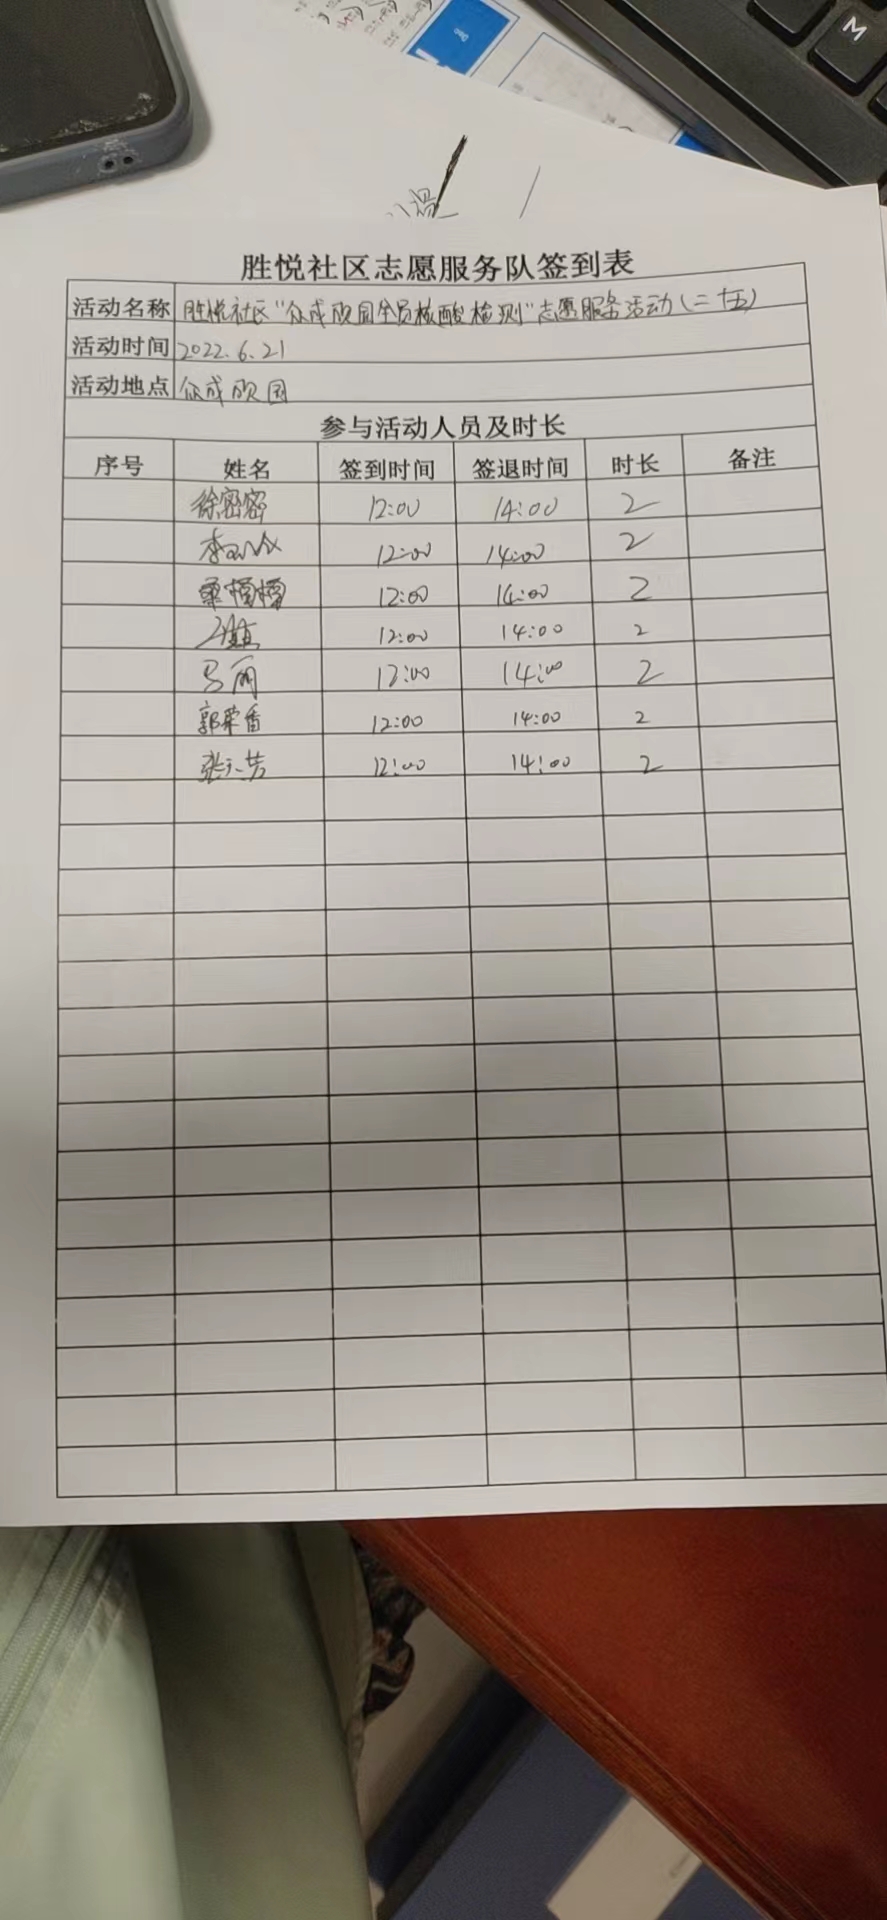 M
胜悦社区志愿服务队签到表
活动名称 胜悦社区"众成欣园全员核酸检测"志愿服务活动(二十五)
活动时间 2022.6.21
活动地点 众成欣园
参与活动人员及时长
序号 姓名 签到时间 签退时间 时长 备注
徐密密 12:00 14:00 2
12:00 14:00 2
桑檀檀 12:00 14:00 2
12:00 14:00 2
马丽 12:00 14:00 2
郭荣香 12:00 14:00 2
12:00 14:00 2